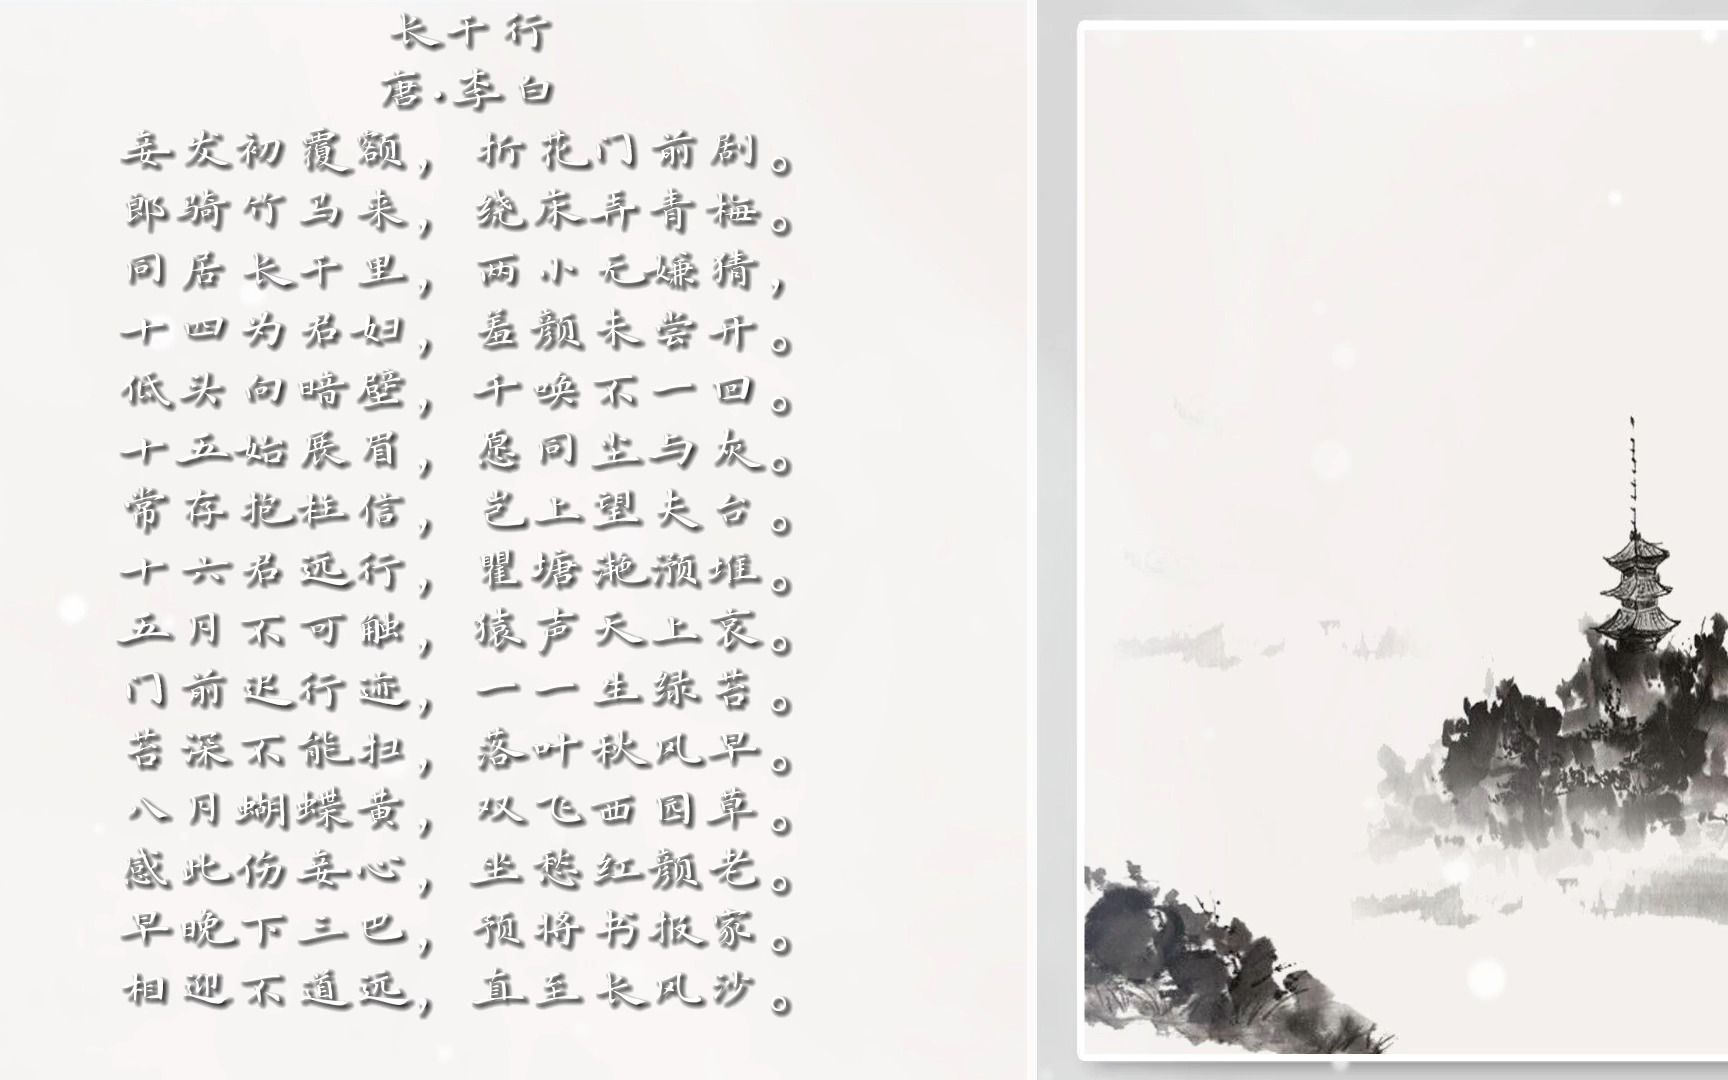 长干行
唐·李白
妾发初覆额，折花门前剧。
郎骑竹马来，绕床弄青梅。
同居长干里，两小无嫌猜，
十四为君妇，羞颜未尝开。
低头向暗壁，千唤不一回。
十五始展眉，愿同尘与灰。
常存抱柱信，岂上望夫台。
十六君远行，瞿塘滟滪堆。
五月不可触，猿声天上哀。
门前迟行迹，一一生绿苔。
苔深不能扫，落叶秋风早。
八月蝴蝶黄，双飞西园草。
感此伤妾心，坐愁红颜老。
早晚下三巴，预将书报家。
相迎不道远，直至长风沙。